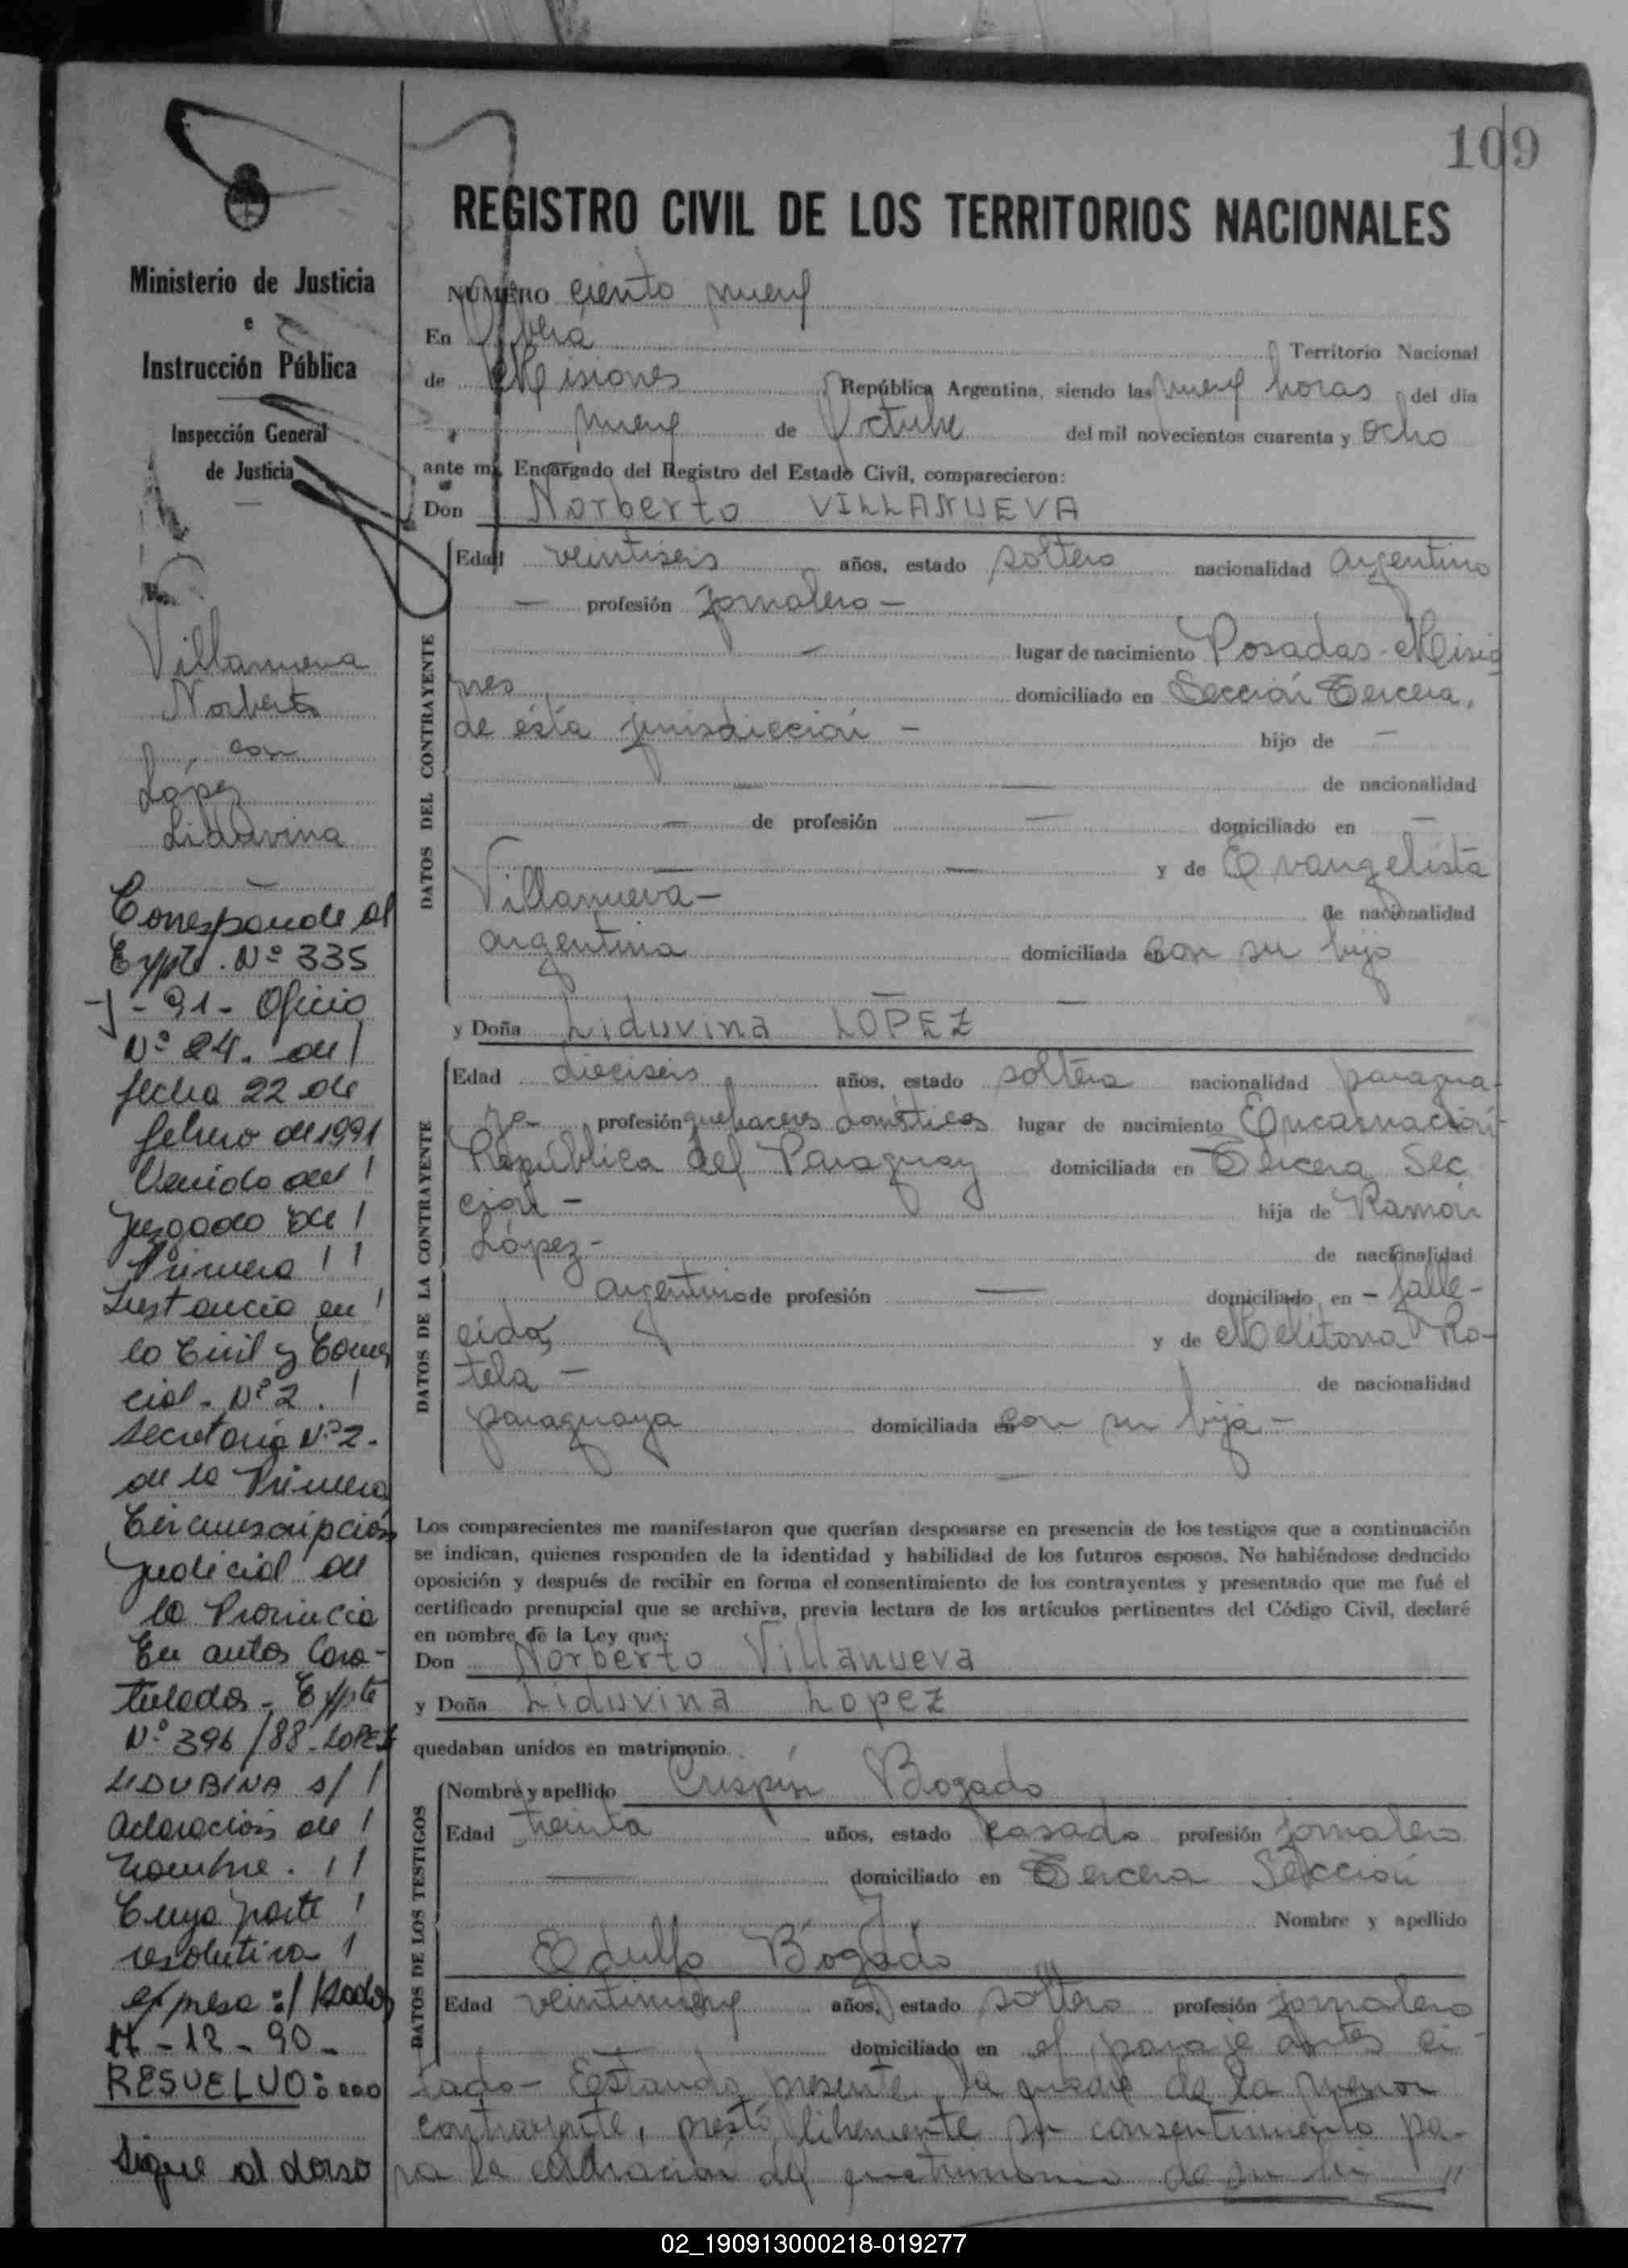 109
REGISTRO CIVIL DE LOS TERRITORIOS NACIONALES
Ministerio de Justicia
e
Instrucción Pública
Inspección General
de Justicia
Villanueva
Norberto
con
López
Liduvina
Corresponde al
Expte. Nº 335
J - 91 - Oficio
Nº 24. de
fecha 22 de
febrero de 1991
Venido del
Juzgado de
Primera
Instancia en
lo Civil y Comer
cial - Nº 2.
Secretaria Nº 2 -
de la Primera
Circunscripción
Judicial de
la Provincia
En autos Cara-
tulados - Expte
Nº 396/88 - LOPEZ
LIDUBINA s/
Aclaración de
Nombre.
Cuya parte
resolutiva
expresa :// Posadas
17 - 12 - 90 -
RESUELVO: ...
Sigue al dorso
NÚMERO ciento nueve
En Oberá Territorio Nacional
de Misiones República Argentina, siendo las nueve horas del día
nueve de Octubre del mil novecientos cuarenta y ocho
ante mi, Encargado del Registro del Estado Civil, comparecieron:
Don Norberto VILLANUEVA
DATOS DEL CONTRAYENTE
Edad veintiseis años, estado soltero nacionalidad argentino
— profesión jornalero —
— lugar de nacimiento Posadas - Misio
nes domiciliado en Sección Tercera,
de ésta jurisdicción — hijo de —
— — de nacionalidad
— de profesión — domiciliado en —
— y de Evangelista
Villanueva — de nacionalidad
argentina domiciliada en con su hijo
— —
y Doña Liduvina LOPEZ
DATOS DE LA CONTRAYENTE
Edad dieciseis años, estado soltera nacionalidad paragua-
ya profesión quehaceres domésticos lugar de nacimiento Encarnación-
República del Paraguay domiciliada en Tercera Sec
ción — hija de Ramón
López - de nacionalidad
argentino de profesión — domiciliado en - falle-
cido, y de Melitona Ro-
tela — de nacionalidad
paraguaya domiciliada en con su hija —
—
Los comparecientes me manifestaron que querían desposarse en presencia de los testigos que a continuación
se indican, quienes responden de la identidad y habilidad de los futuros esposos. No habiéndose deducido
oposición y después de recibir en forma el consentimiento de los contrayentes y presentado que me fué el
certificado prenupcial que se archiva, previa lectura de los artículos pertinentes del Código Civil, declaré
en nombre de la Ley que:
Don Norberto Villanueva
y Doña Liduvina Lopez
quedaban unidos en matrimonio.
DATOS DE LOS TESTIGOS
Nombre y apellido Crispín Bogado
Edad treinta años, estado casado profesión jornalero
— domiciliado en Tercera Sección
Nombre y apellido
Edulfo Bogado
Edad veintinueve años, estado soltero profesión jornalero
domiciliado en el paraje antes ci-
tado - Estando presente la madre de la menor
contrayente, prestó libremente su consentimiento pa-
ra la celebración del matrimonio de su hi //
02_190913000218-019277